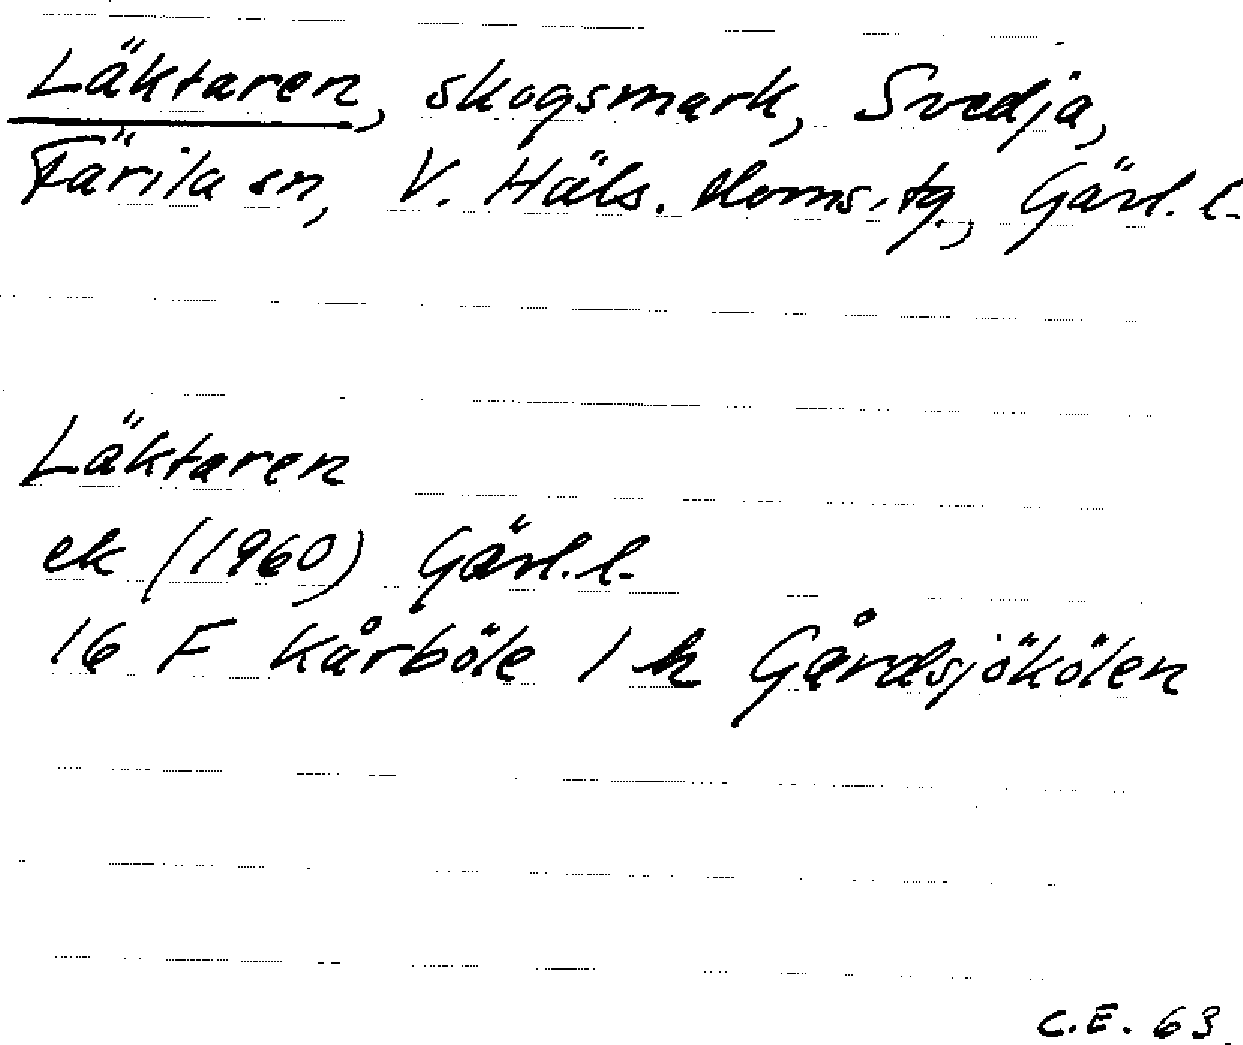 Läktaren, skogsmark, Svedja,
Färila sn, V. Häls. doms.tg., Gävl. l.
Läktaren
ek (1960) Gävl. l.
16 F Kårböle 1 h Gårdsjökölen
C.E. 63